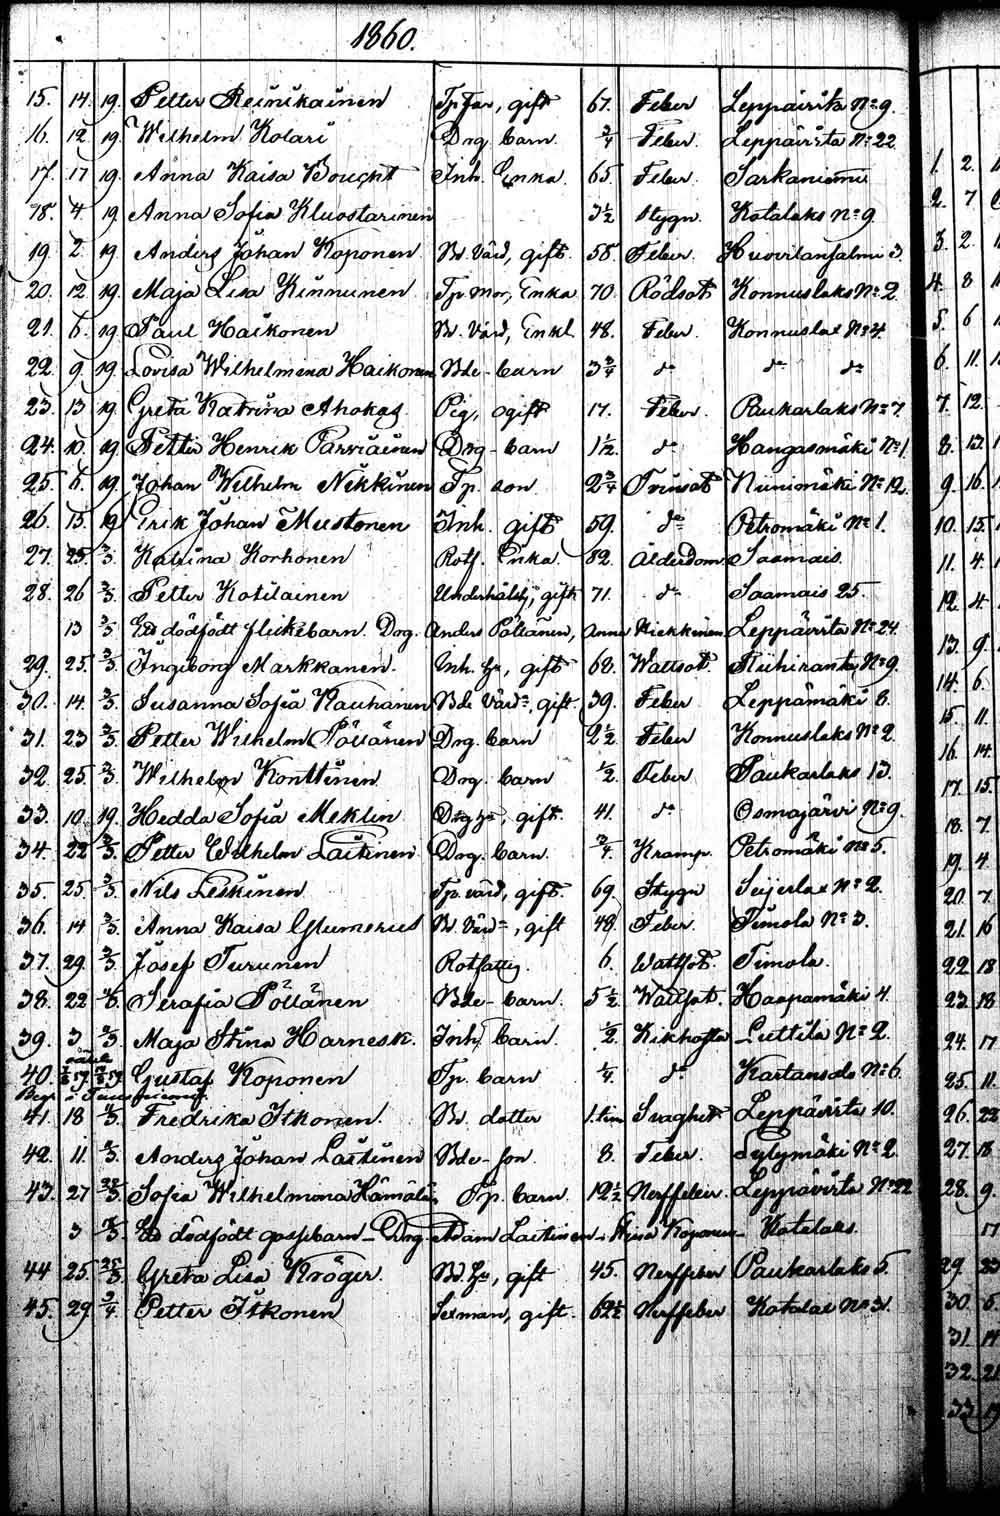 1860.
15. 14. 19. Petter Reinikainen Tp. Far, gift 67. Feber Leppävirta No 9.
16. 12 19. Wilhelm Kolari Drg barn 3/4 Feber. Leppävirta No 22
17. 17 19. Anna Kaisa Boucht Inh. Enka. 65. Feber. Sarkaniemi
18. 4 19. Anna Sofia Kluostarinen 3 1/2 Stygn. Kotalaks No 9
19. 2. 19. Anders Johan Koponen Bd. Värd, gift. 58. Feber. Huovilansalmi 3.
20. 12. 19. Maja Lisa Kinnunen Tp. Mor, Enka 70. Rödsot Konnuslaks No 2.
21. 6. 19. Paul Haikonen Bd. Värd, Enkl. 48. Feber. Konnuslax No 4.
22. 9. 19. Lovisa Wilhelmina Haikonen Bde-barn 3 3/4 do do do
23. 13 19. Greta Katrina Ahokas Pig, ogift 17. Feber. Paukarlaks No 7.
24. 10. 19. Petter Henrik Parviainen Drg-barn 1 1/2. do Hangasmäki No 1.
25. 6. 19. Johan Wilhelm Nikkinen Tp. son 2 3/4 Tvinsot Niinimäki No 12.
26. 15. 19. Erik Johan Mustonen Inh. gift 59. do Petromäki No 1.
27. 25. 2/3. Katrina Korhonen Rotf. Enka 82. Ålderdom Saamais.
28. 26 2/3. Petter Kotilainen gift 71. do Saamais 25.
13 2/3. Ett dödfödt flickebarn. Drg. Anders Pöllänen, Anna Leppävirta No 24.
29. 25. 2/3. Ingeborg Markkanen. Inh. Hu, gift 68. Wattsot. Riihiranta No 9.
30. 14. 2/3. Susanna Sofia Kauhanen Bde Värda, gift. 39. Feber Leppämäki 8.
31. 23 2/3. Petter Wilhelm Pöllänen Drg. barn 2 1/2. Feber Konnuslaks No 2.
32. 25. 2/3. Wilhelm Konttinen Drg. barn 1/2. Feber Paukarlaks 13.
33. 10 19. Hedda Sofia Meklin Drg hu, gift. 41. do Osmajärvi No 9.
34. 22 2/3. Petter Wilhelm Laitinen Drg. barn. 3/4. Kramp. Petromäki No 5.
35. 25. 2/3. Nils Leskinen Tp. värd, gift. 69. Stygn Seijerlax No 2.
36. 14 2/3. Anna Kaisa Glumerus Bd. Värda, gift 48. Feber. Timola No 3.
37. 29. 2/3. Josef Turunen Rotfattig. 6. Wattsot. Timola.
38. 22 Serafia Pöllänen Bde-barn. 5 1/2. Wattsot. Haapamäki 4.
39. 3 2/3. Maja Stina Harnesk. Inh. barn 1/2. Kikhosta Luttila No 2.
40. Gustaf Koponen Tp. barn 1/4. do No 6.
41. 18 Fredrika Itkonen. Bd. dotter 1. tim Svaghet Leppävirta 10.
42. 11. 2/3. Anders Johan Laitinen Bde-son. 8. Feber. Sylymäki No 2.
43. 27 25/3. Sofia Wilhelmina Hämäläi Tp. barn. 12 1/2 Nerffeber. Leppävirta No 22
3 Ett dödfödt gossebarn - Drg. Adam Laitinen Koponen - Kotalaks.
44 25. 25/3. Greta Lisa Kröger. Bd. hu, gift 45. Nerffeber Paukarlaks 5.
45. 29. 2/4. Petter Itkonen Sexman, gift. 62 1/2 Nerffeber Kotalax No 3.
1. 2.
2. 7
3. 2.
4. 8
5. 6
6. 11.
7. 12.
8. 13.
9. 16.
10. 15.
11. 4.
12. 4.
13. 9.
14. 6.
15. 11.
16. 14.
17. 15.
18. 7.
19. 4
20. 7
21. 16
22 18
23. 18.
24. 17
25. 11.
26. 23
27. 18
28. 9.
17
29. 23
30. 6.
31. 14
32. 21
33